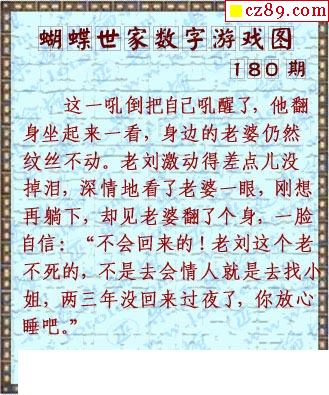 cz89.com
蝴蝶世家数字游戏图
180 期
这一吼倒把自己吼醒了，他翻
身坐起来一看，身边的老婆仍然
纹丝不动。老刘激动得差点儿没
掉泪，深情地看了老婆一眼，刚想
再躺下，却见老婆翻了个身，一脸
自信：“不会回来的！老刘这个老
不死的，不是去会情人就是去找小
姐，两三年没回来过夜了，你放心
睡吧。”